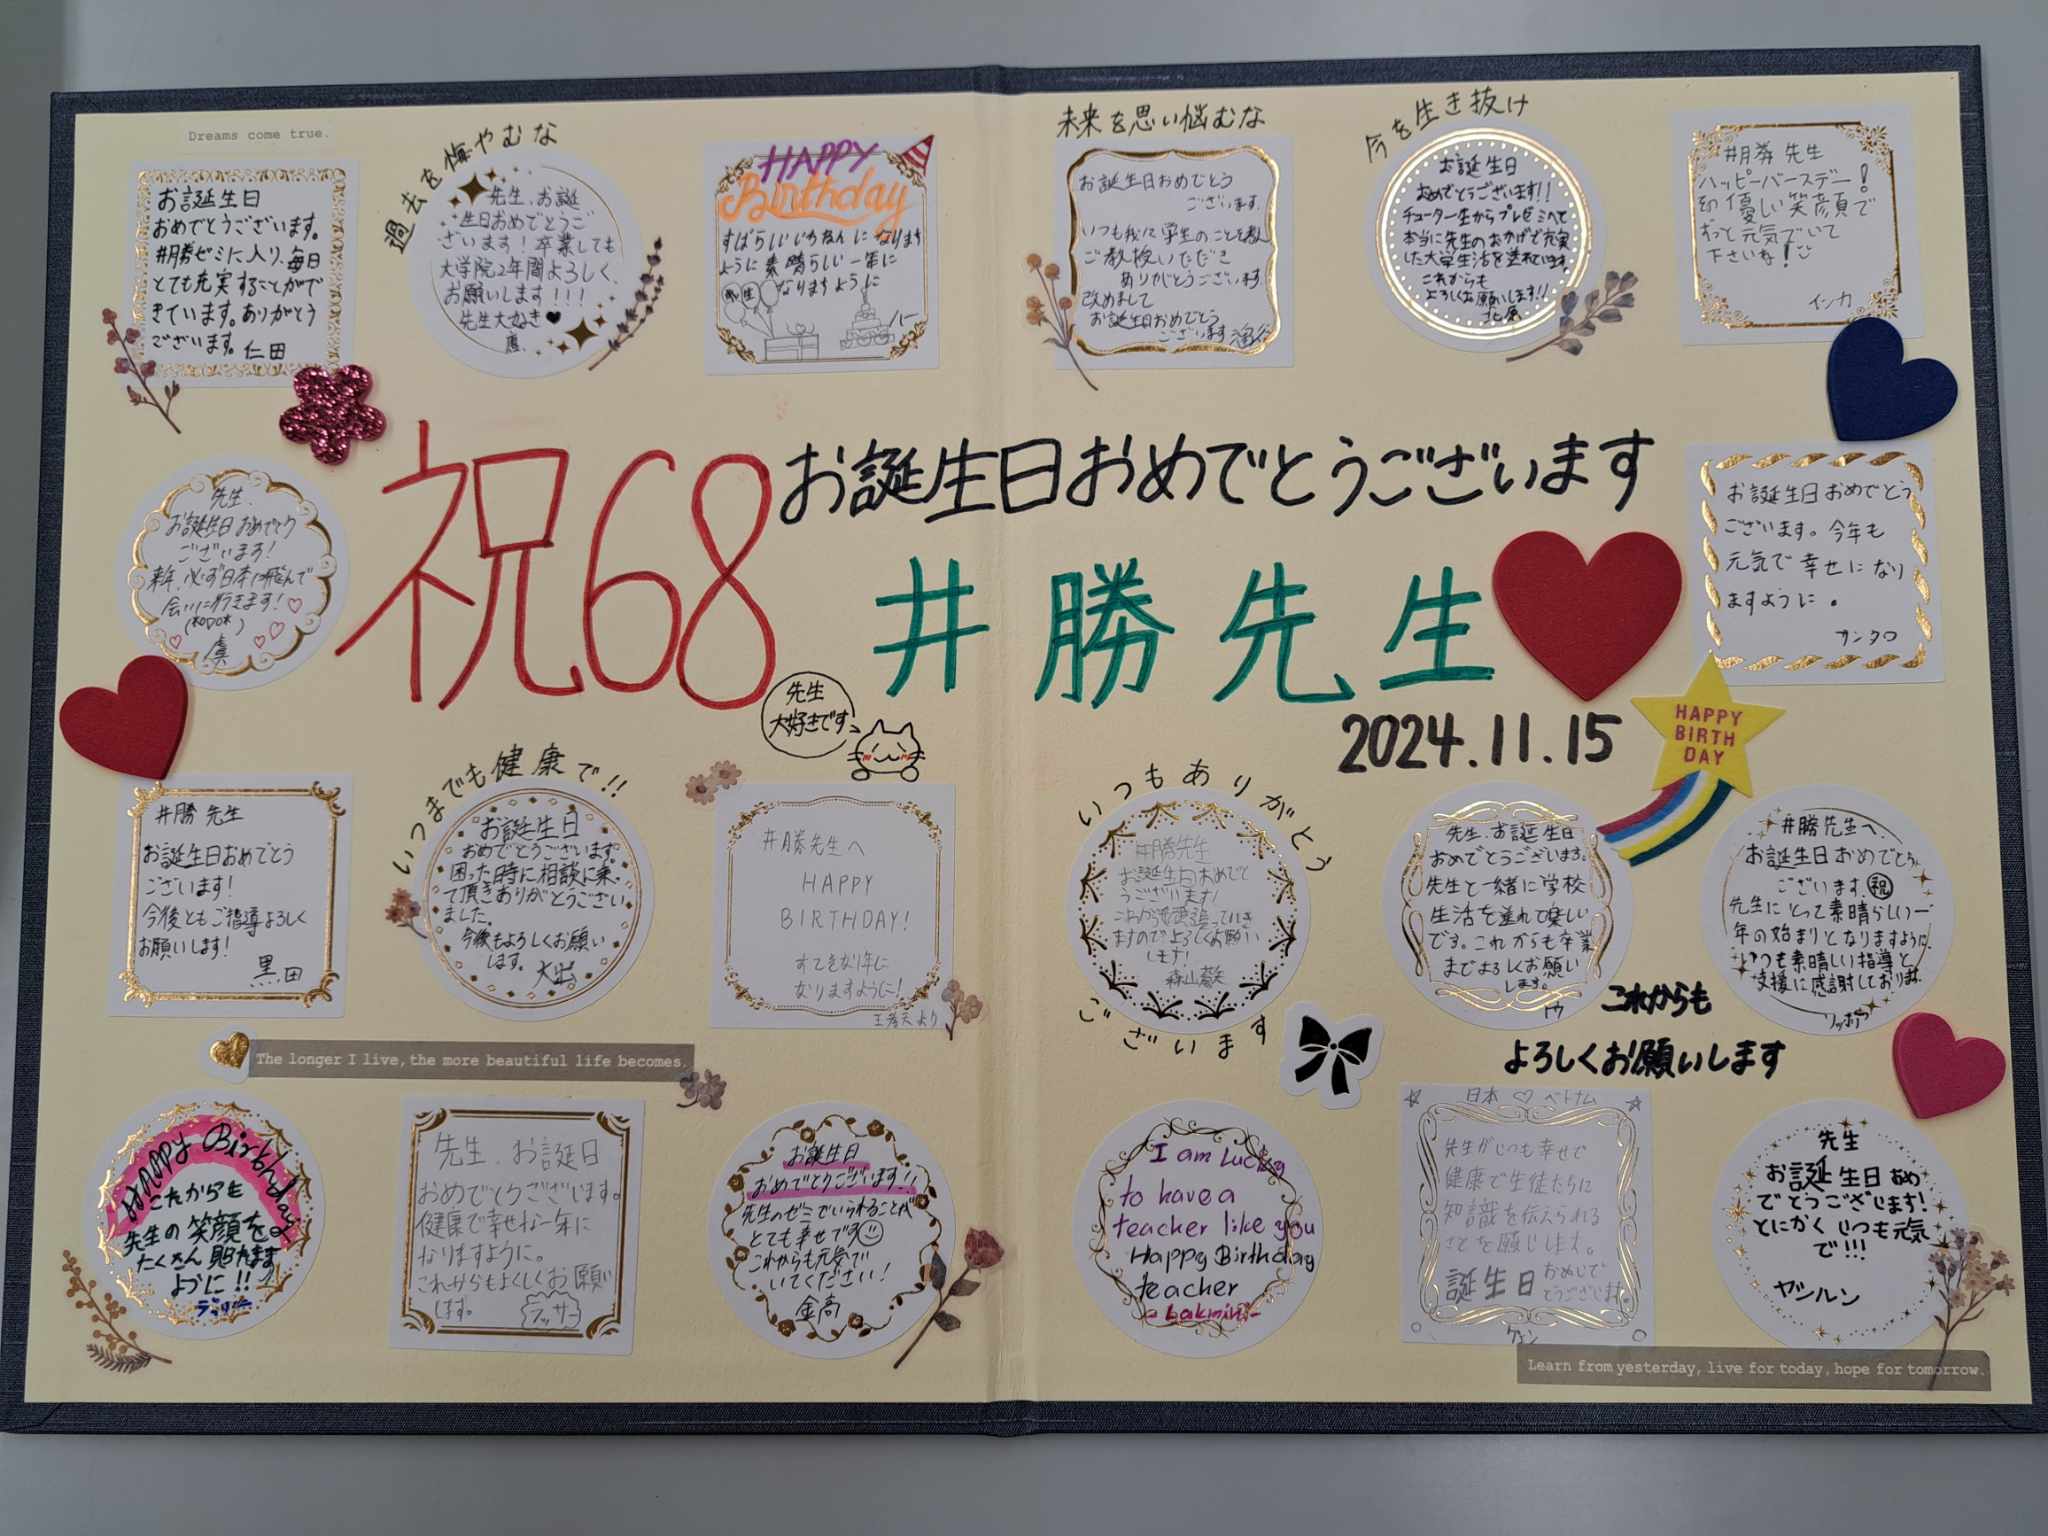 Dreams come true.
お誕生日
おめでとうございます。
井勝ゼミに入り、毎日
とても充実することがで
きています。ありがとう
ございます。仁田
過去を悔やむな
先生、お誕
生日おめでとうご
ざいます！卒業しても
大学院2年間よろしく、
お願いします！！！
先生大好き♥
HAPPY
Birthday
ように素晴らしい一年に
なりますように
未来を思い悩むな
お誕生日おめでとう
ございます。
ご教授いただき
ありがとうございます。
改めまして
お誕生日おめでとう
ございます
今を生き抜け
お誕生日
おめでとうございます！！
チューター生からプレゼミへて
本当に先生のおかげで充実
した大学生活を送れています。
これからも
よろしくお願いします！！
北原
井勝先生
ハッピーバースデー！
優しい笑顔で
ずっと元気でいて
下さいね！
インカ
祝68
お誕生日おめでとうございます
井勝先生
2024.11.15
先生、
お誕生日おめでとう
ございます！
来年、必ず日本に飛んで
会いに行きます！
虞
お誕生日おめでとう
ございます。今年も
元気で幸せになり
ますように。
カンタロ
先生
大好きです
HAPPY
BIRTH
DAY
井勝先生
お誕生日おめでとう
ございます！
今後ともご指導よろしく
お願いします！
黒田
いつまでも健康で！！
お誕生日
おめでとうございます。
困った時に相談に乗っ
て頂きありがとうござい
ました。
今後もよろしくお願い
します。
井勝先生へ
HAPPY
BIRTHDAY!
すてきな1年に
なりますように！
いつもありがとう
井勝先生
お誕生日おめでと
うございます！
これからも頑張っていき
ますのでよろしくお願い
します！
ございます
先生、お誕生日
おめでとうございます。
先生と一緒に学校
生活を送れて楽しい
です。これからも卒業
までよろしくお願い
します。
井勝先生へ
お誕生日おめでとう
ございます㊗
先生にとって素晴らしい一
年の始まりとなりますように。
いつも素晴しい指導と
支援に感謝しております。
これからも
よろしくお願いします
The longer I live, the more beautiful life becomes.
HAPPY Birthday
これからも
先生の笑顔を
たくさん見れます
ように！！
先生、お誕日
おめでとうございます。
健康で幸せな一年に
なりますように。
これからもよくしくお願い
します。
ラッサミ
お誕生日
おめでとうございます！！
先生のゼミでいられることが
とても幸せです
これからも元気で
いてください！
金高
I am Lucky
to have a
teacher like you
Happy Birthday
teacher
Lakmini
日本♡ベトナム
先生がいつも幸せで
健康で生徒たちに
知識を伝えられる
ことを願います。
誕生日おめでとうございます。
先生
お誕生日おめ
でとうございます！
とにかくいつも元気
で！！！
ヤシルン
Learn from yesterday, live for today, hope for tomorrow.